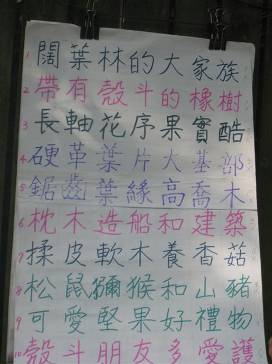 1 闊葉林的大家族
2 帶有殼斗的橡樹
3 長軸花序果實酷
4 硬革葉片大基部
5 鋸齒葉緣高喬木
6 枕木造船和建築
7 揉皮軟木養香菇
8 松鼠獼猴和山豬
9 可愛堅果好禮物
10 殼斗朋友多愛護